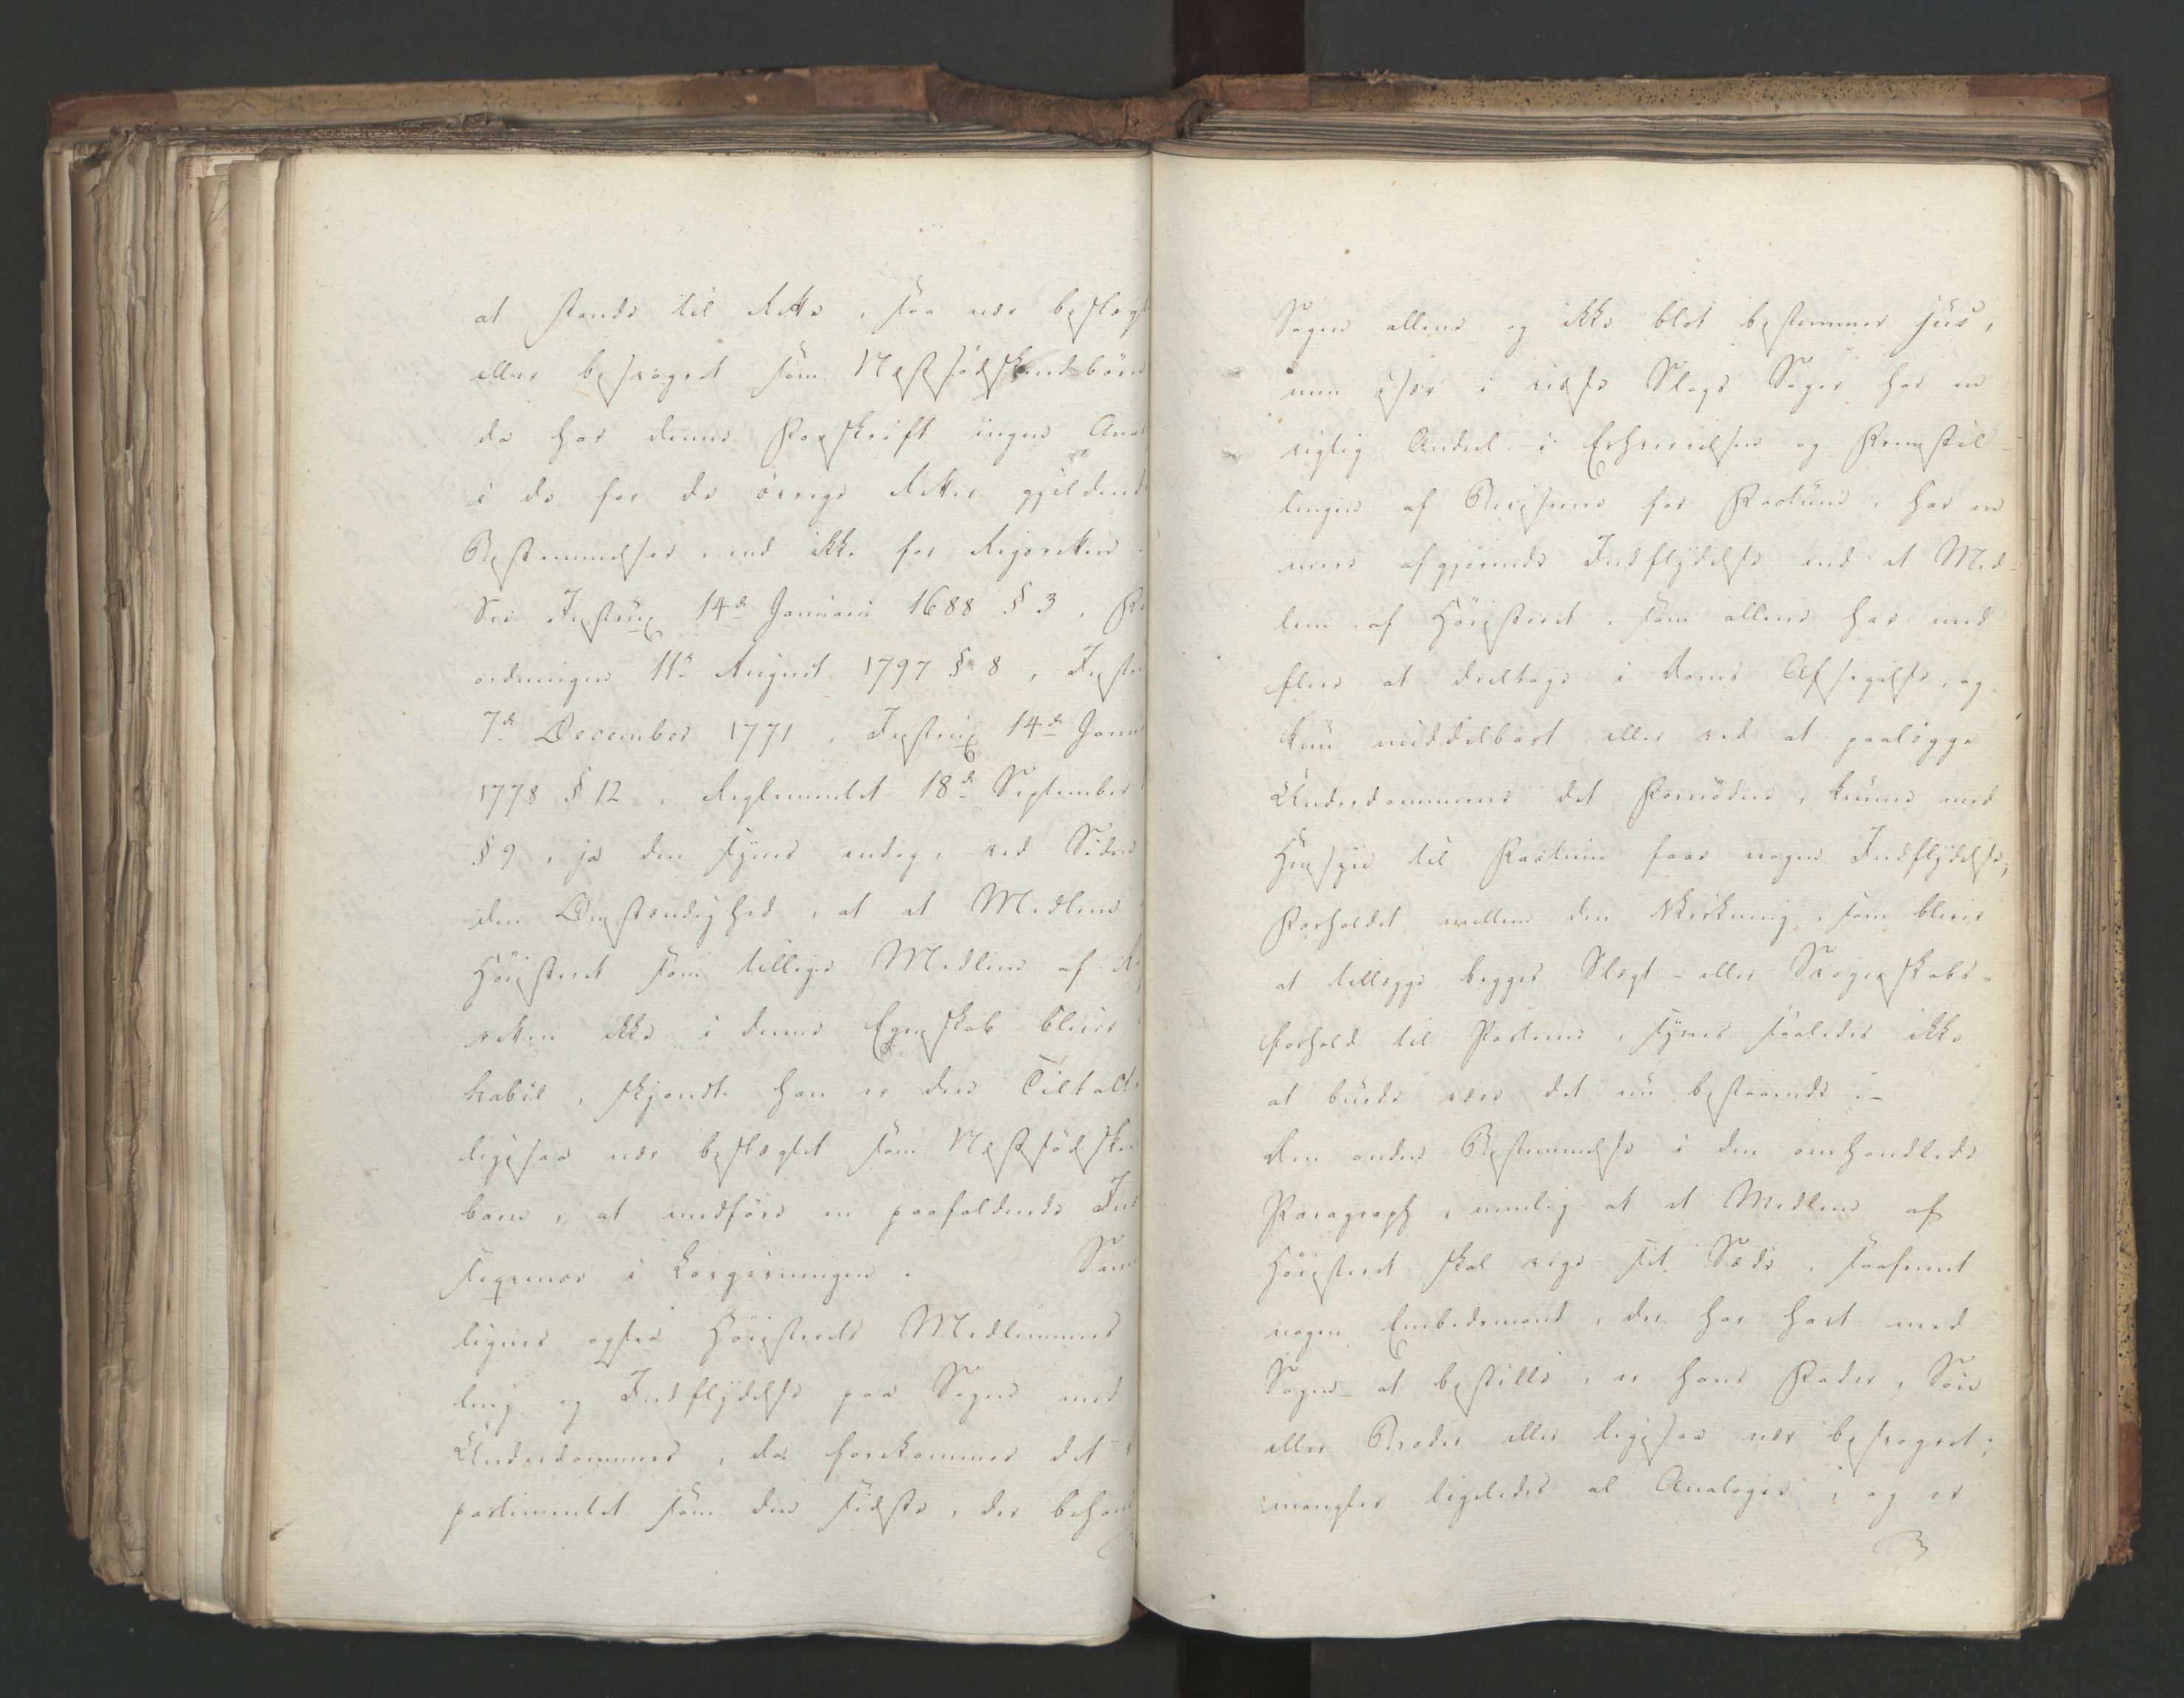 at stande til Rette, saa nær beslægt
eller besvogret som Næstsødskendebørn
da har denne Forskrift ingen Anal
i de for de övrige Retter gjeldende
Bestemmelser, end ikke for Rigsretten.
See Instrux 14de Januarii 1688 § 3, Fo
ordningen 11te August 1797 § 8, Instr
7de December 1771, Instrux 14de Janu
1778 § 12, Reglementet 18de September
§ 9, ja den synes endog, ved Siden
den Omstændighed, at et Medlem
Höiesteret som tillige Medlem af Ri
retten ikke i denne Egenskab bliver
habil, skjondt han er den Tiltalte
ligesaa nær beslægtet som Næstsødsken
barn, at medföre en paafaldende Ind
seqvence i Lovgivningen. Sam
ligner ogsaa Höiesterets Medlemmers
ling og Indflydelse paa Sagen med
Underdommers, da forekommer det
partementet som den sidste, der behand
Sagen allene og ikke blot bestemmer jus,
men især i visse Slags Sager har en
vigtig Andeel i Erhvervelsen og Fremstil-
lingen af Beviserne for Factum, har en
mere afgjörende Indflydelse end et Med-
lem af Höiesteret, som allene har med
flere at deeltage i Doms Afsigelse, og
kun middelbart eller ved at paalægge
Underdommerne det Fornödne, kunne med
Hensyn til Factum faae nogen Indflydelse;
Forholdet mellem den Virkning, som bliver
at tillægge begges Slægt- eller Svogerskabs-
forhold til Parterne, synes saaledes ikke
at burde være det nu bestaaende.-
Den anden Bestemmelse i den omhandlede
Paragraph, nemlig at et Medlem af
Höiesteret skal vige sit Sæde, saafremt
nogen Embedsmand, der har havt med
Sagen at bestille, er hans Fader, Sön
eller Broder eller ligesaa nær besvogret;
mangler ligeledes al Analogie; og er